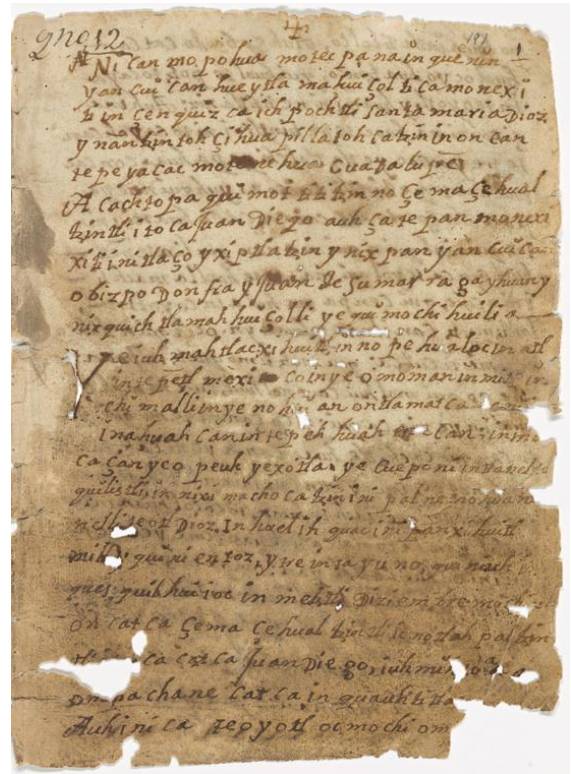 gno 12
191 1
Nican mopohua motecpana in quenin
yancuican hueytlamahuiçoltica monexi
ti in cenquizca ichpochtli santa maria Dioz
ynantzin toh çihuapillatohcatzin in oncan
tepeyacac motenehua Guadalupe
Acachtopa quimottititzinno çe maçehual
tzintli itoca Juan Diego auh çatepan monexi
xiti initlaço yxiptlatzin ynixpan yancuican
obizpo Don fray Juan de sumarraga yhuan y
nixquich tlamahhuiçolli ye quimochihuilia
ye iuh mahtlacxihuitl in nopehualoc in atl
in tepetl mexico coin ye omoman in mitl in
chimalli in ye nohuian ontlamatca
in ahuah can in tepehuah
ca çan yeo peuh ye xotla ye cueponi in
quilistli in iximachocatzin ipalnemohuani
nelli teotl Dioz. In huel ih quac in ipan xihuitl
mill y quinientoz, y treinta y uno, quin iuh
quezquilhuitioc in metztli Diziembre
oncatca çe maçehualtzintli icnotlahpaltzin
itoca catca Juan Diego, iuh
ompa chane catca in quauhtitla
Auh in ica teoyotl oc mochi om